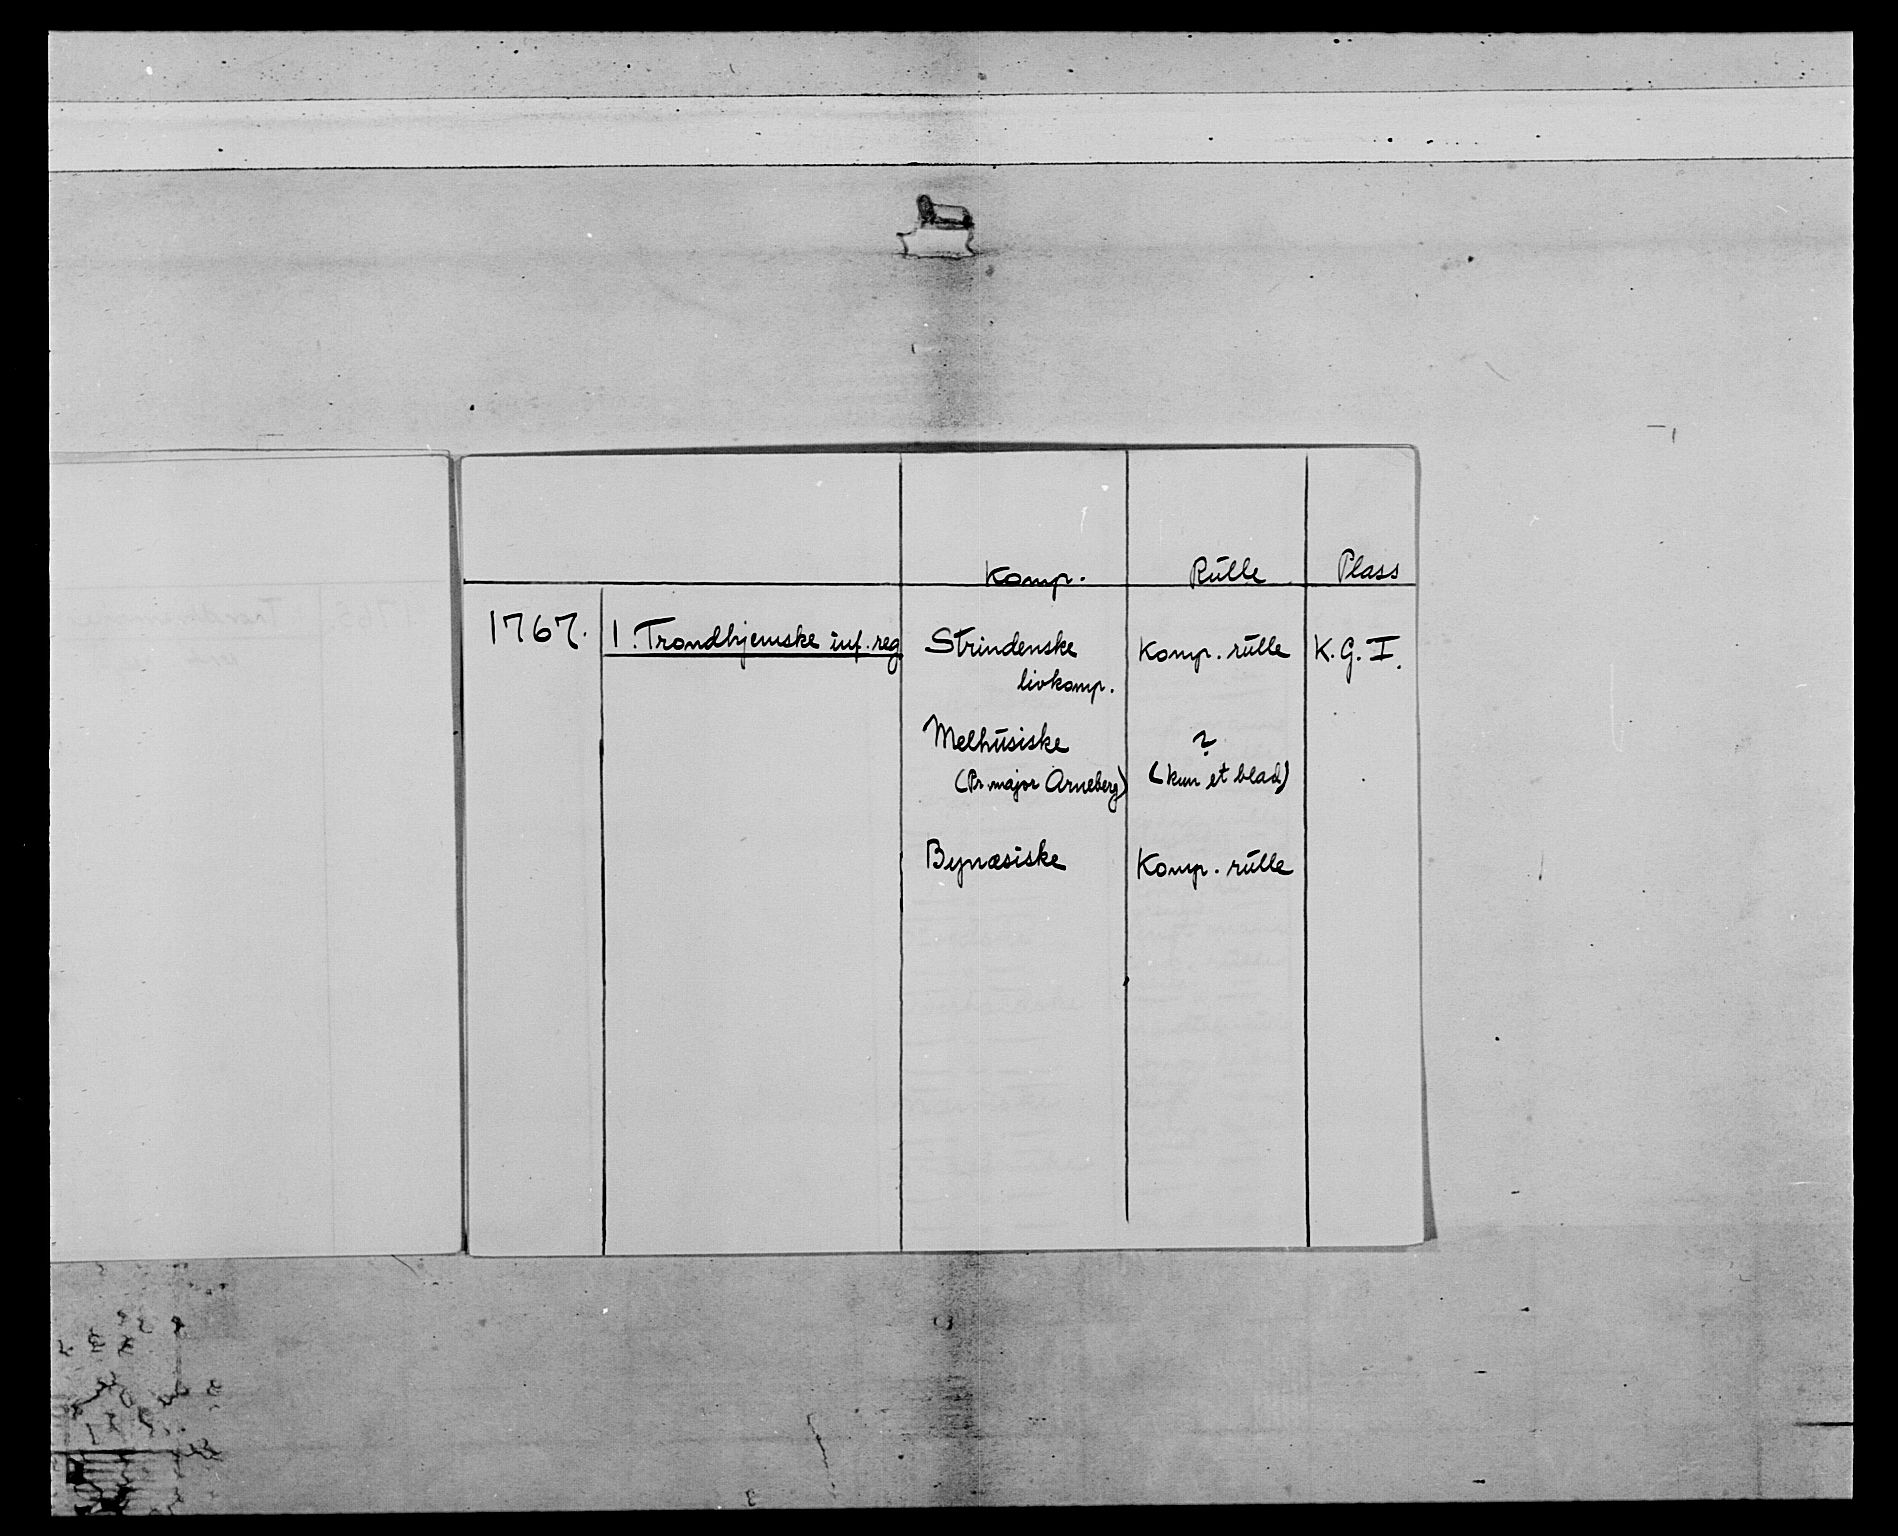 Komp. Rulle Plass
1767. 1. Trondhjemske inf. reg Strindenske Komp. rulle K. G. I.
livkomp.
Melhusiske ?
(Pr. major Arneberg) (kun et blad)
Bynæsiske Komp. rulle